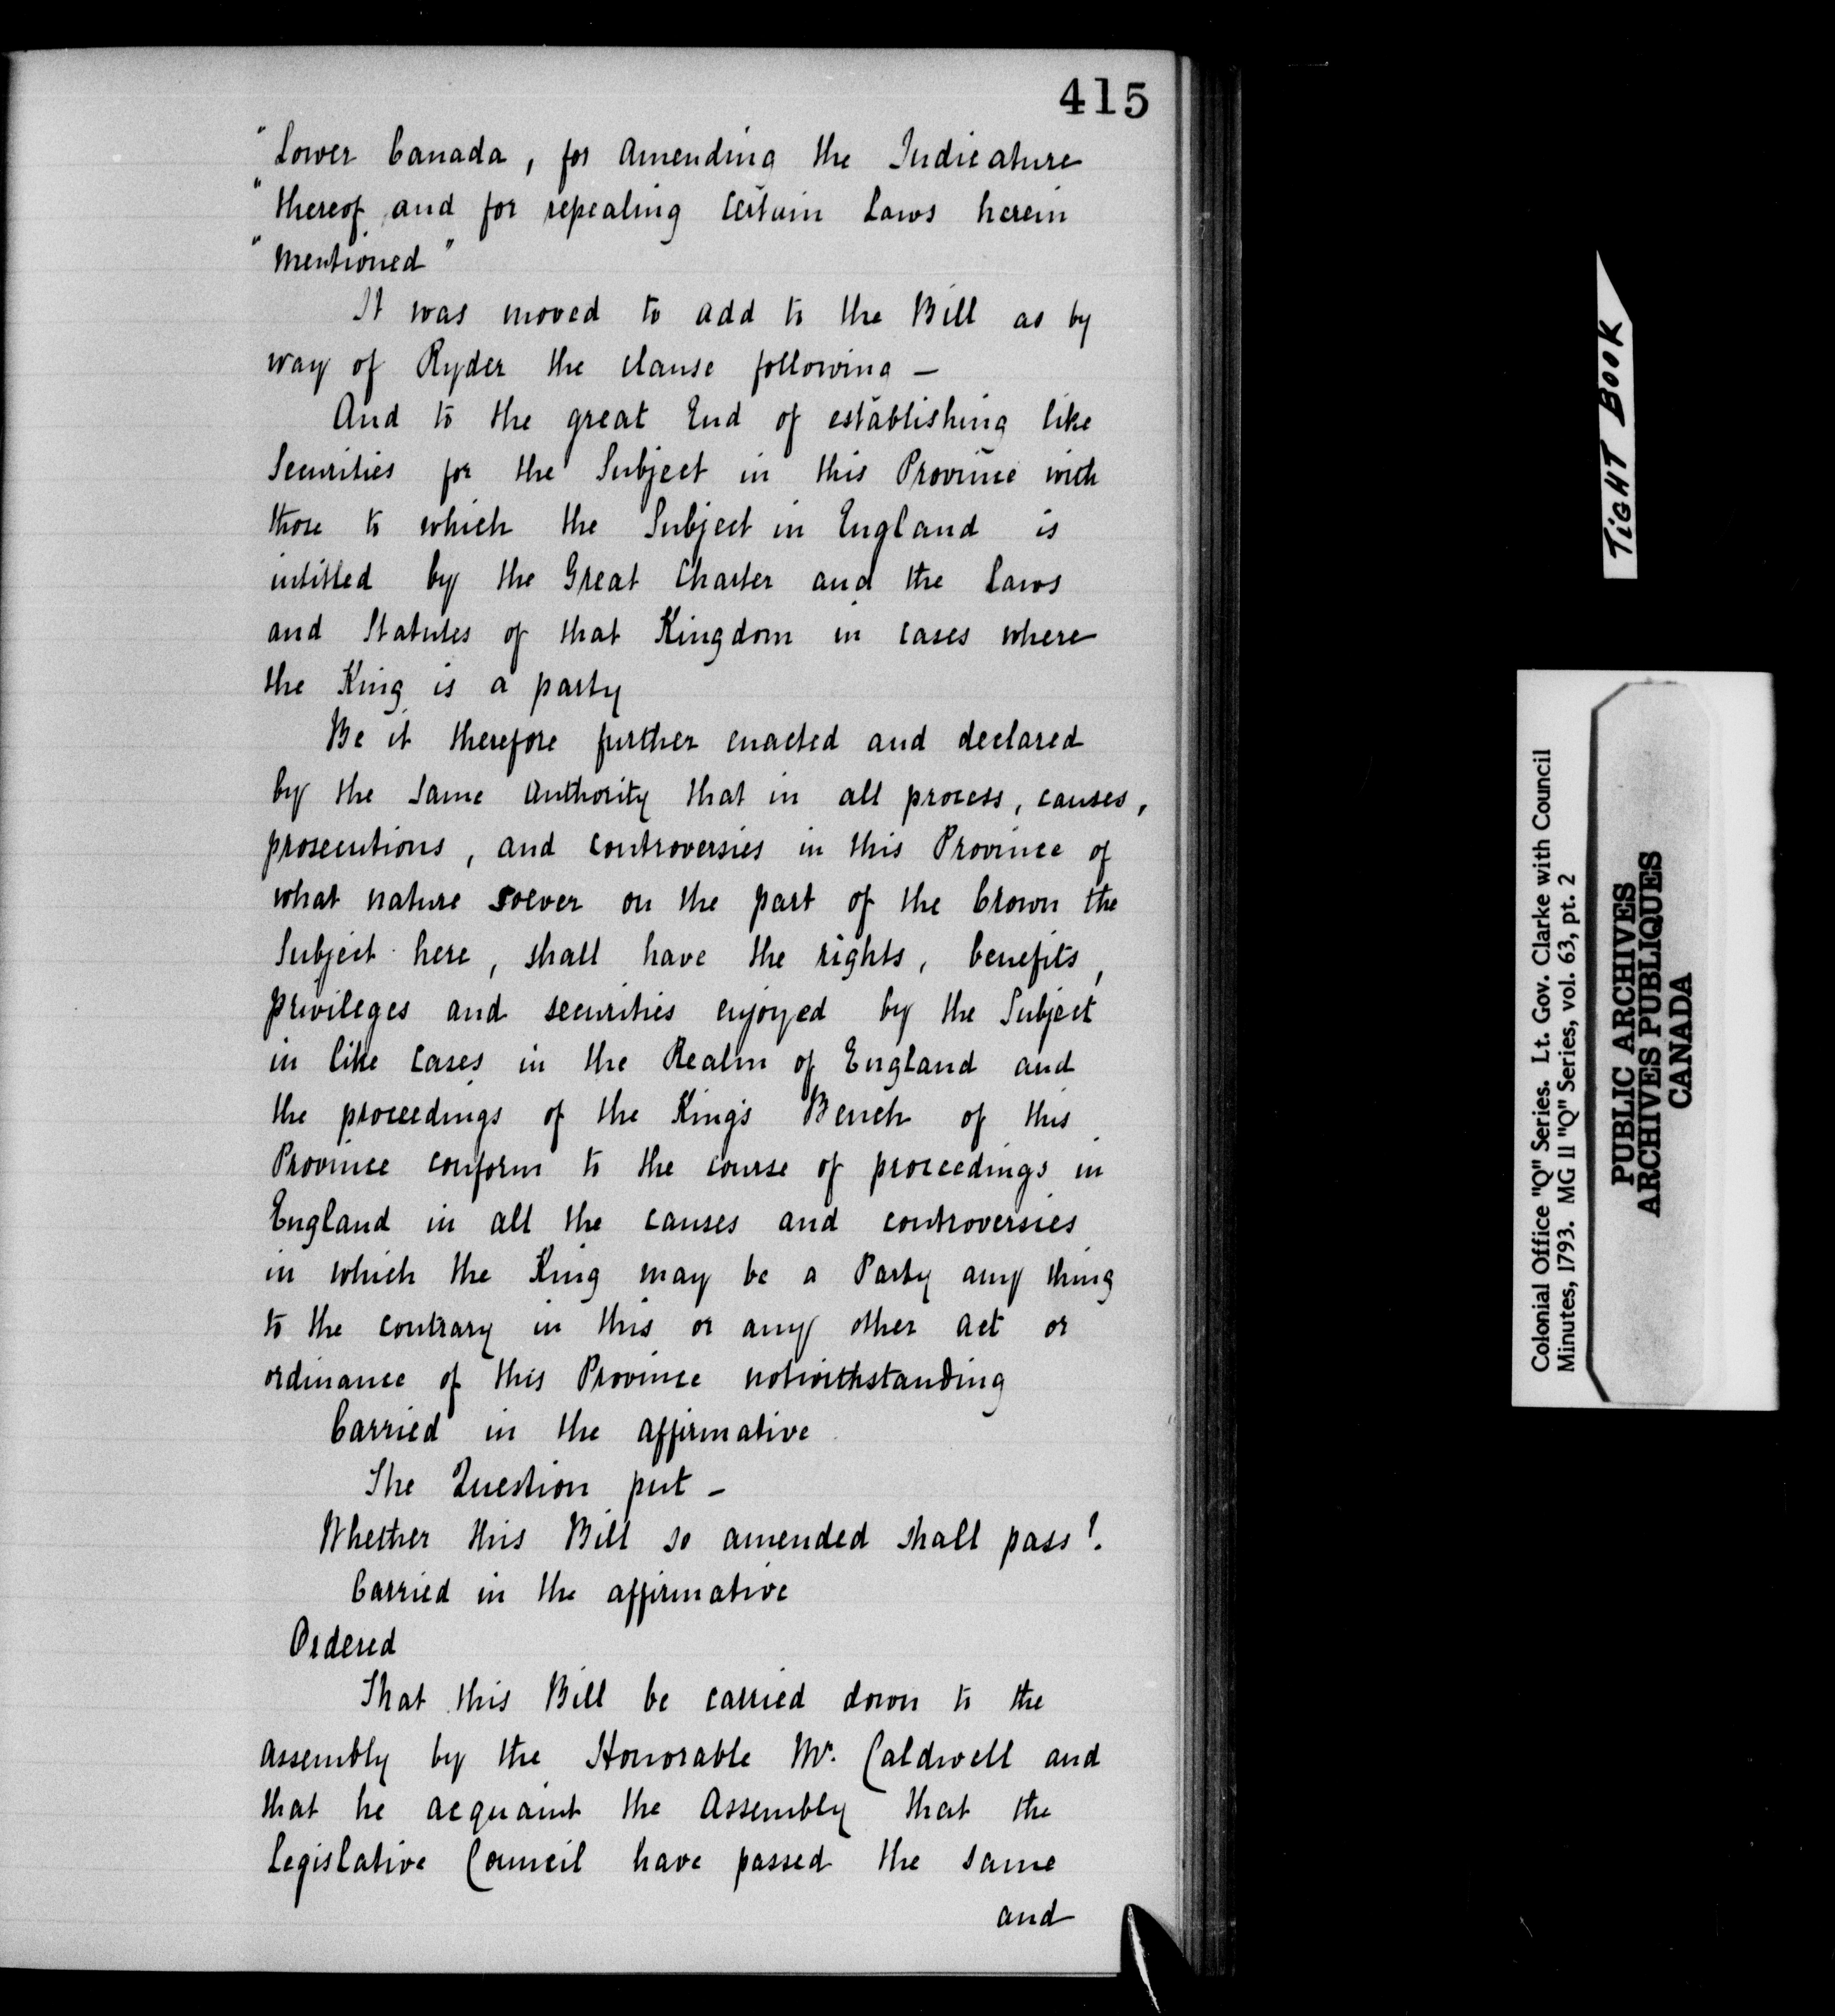 415
"Lower Canada, for amending the Judicature
"thereof and for repealing certain Laws herein
"mentioned"
It was moved to add to the Bill as by
way of Ryder the clause following —
And to the great End of establishing like
Securities for the Subject in this Province with
those to which the Subject in England is
intitled by the Great Charter and the Laws
and Statutes of that Kingdom in cases where
the King is a party
Be it therefore further enacted and declared
by the same authority that in all process, causes,
prosecutions, and controversies in this Province of
what nature soever on the part of the Crown the
Subject here, shall have the rights, benefits,
privileges and securities enjoyed by the Subject
in like cases in the Realm of England and
the proceedings of the King's Bench of this
Province conform to the course of proceedings in
England in all the causes and controversies
in which the King may be a Party any thing
to the contrary in this or any other act or
ordinance of this Province notwithstanding
Carried in the affirmative
The Question put —
Whether this Bill so amended shall pass?
Carried in the affirmative
Ordered
That this Bill be carried down to the
Assembly by the Honorable Mr. Caldwell and
that he acquaint the Assembly that the
Legislative Council have passed the same
and
TIGHT BOOK
Colonial Office "Q" Series. Lt. Gov. Clarke with Council
Minutes, 1793. MG 11 "Q" Series, vol. 63, pt. 2
PUBLIC ARCHIVES
ARCHIVES PUBLIQUES
CANADA